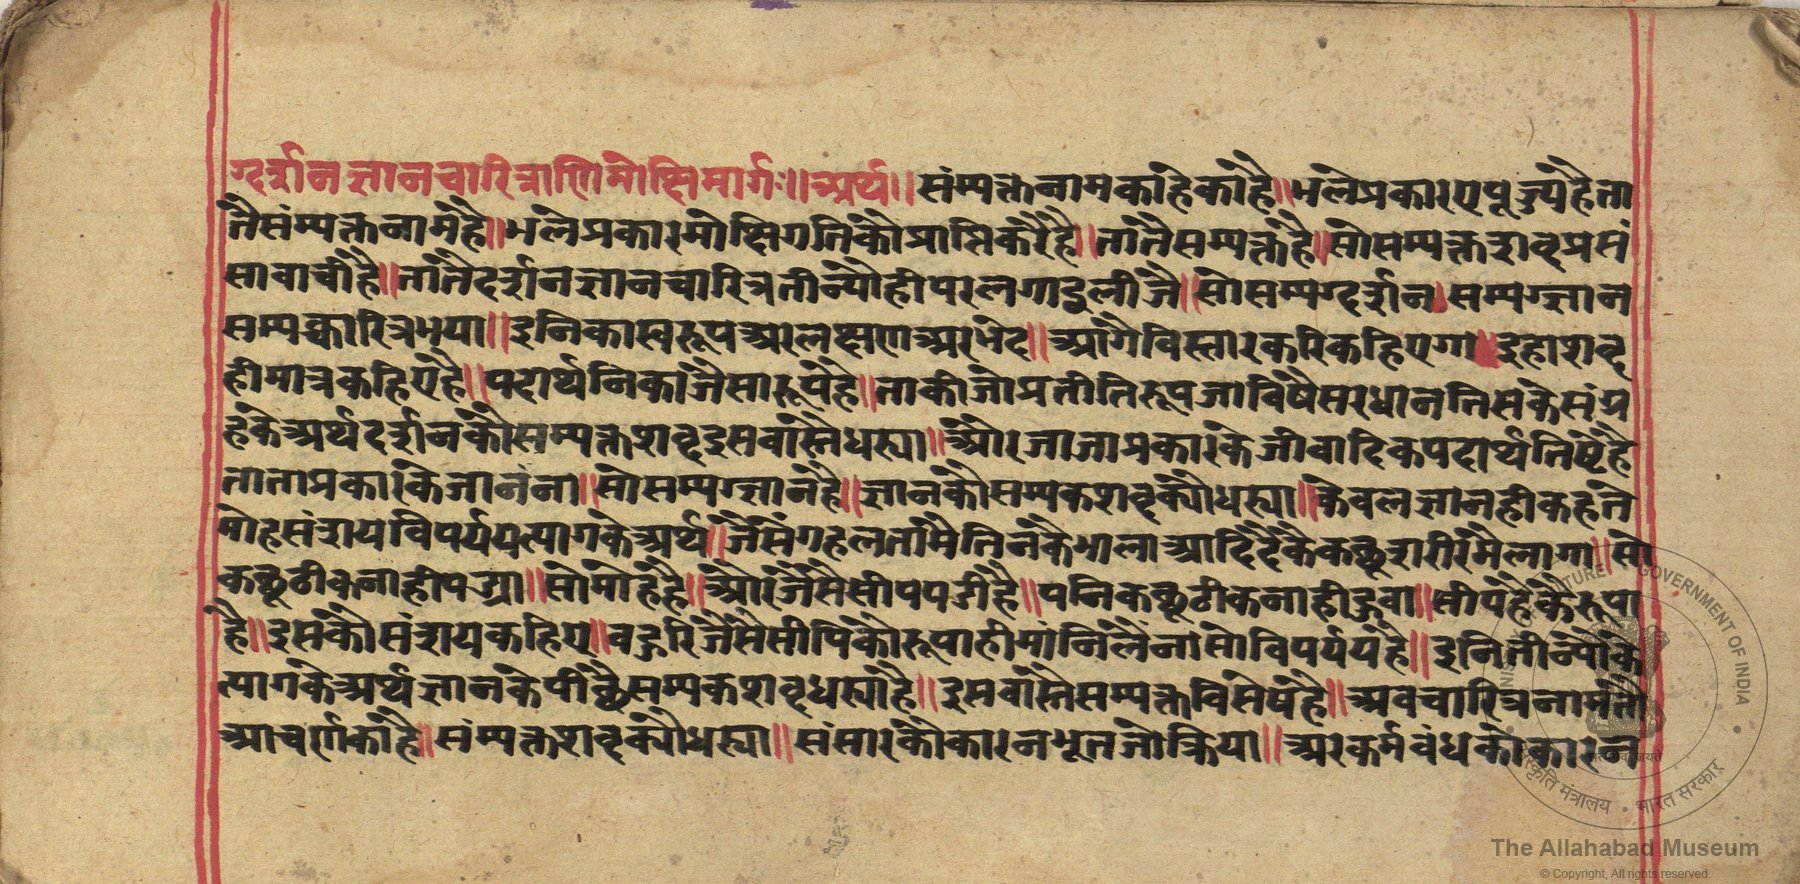 ग्दर्शन ज्ञान चारित्राणि मोक्षि मार्गः॥ अर्थ॥ संम्यक्त नाम काहे का है॥ भले प्रकार ए पूज्य है ता
तै संम्यक्त नाम है॥ भले प्रकार मोक्षि गति कौ प्राप्ति करै है॥ तातै सम्यक्त है॥ सो सम्यक्त शब्द प्रसं
सा वाची है॥ तातै दर्शन ज्ञान चारित्र तीन्यौ ही पर लगाइ लीजै॥ सो सम्यग्दर्शन सम्यग्ज्ञान
सम्यक्चारित्र भया॥ इनि का स्वरूप अर लक्षण अर भेद॥ आगै विस्तार करि कहिएगा॥ इहा शब्द
ही मात्र कहिए है॥ पदार्थनि का जैसा रूप है॥ ताकी जो प्रतीति रूप जा विषै सरधान तिसके संग्र
हके अर्थ दर्शन कौ सम्यक्त शब्द इस वास्तै धस्या॥ और जा जा प्रकार के जीवादिक पदार्थ तिष्टै है
ता ता प्रकार कि जानना॥ सो सम्यग्ज्ञान है॥ ज्ञान कौ सम्यक शब्द क्यौ धस्या॥ केवल ज्ञान ही कहते
मोह संशय विपर्यय त्याग के अर्थ॥ जैसे गहलता मै तिन कै भाला आदि दे कै कछू शरीर मै लागा॥ सो
कछू ठीक नाही पड्या॥ सो मोह है॥ और जैसै सीप पडी है॥ पनि कछू ठीक ना ही हुवा॥ सीप है कै रूपा
है॥ इस कौ संशय कहिए॥ बहुरि जैसै सीपि कौ रूपा ही मानि लैना सो विपर्यय है॥ इनि तीन्यौ के
त्याग के अर्थ ज्ञान के पीछै सम्यक शब्द धस्या है॥ इस वास्तै सम्यक्त विसेष है॥ अब चारित्र नाम तौ
आचर्ण का है॥ संम्यक्त शब्द क्यौ धस्या॥ संसार कौ कारन भूत जो क्रिया॥ अर कर्म बंध कौ कारन
MINISTRY OF CULTURE GOVERNMENT OF INDIA
संस्कृति मंत्रालय • भारत सरकार
The Allahabad Museum
© Copyright, All rights reserved.